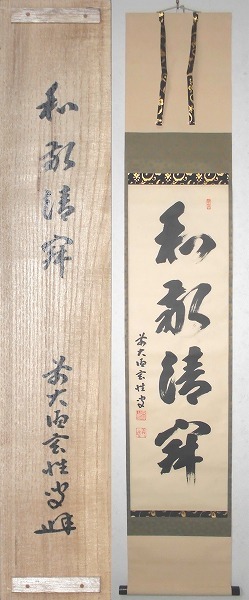 和敬清寂
前大徳玄性叟
和敬清寂
前大徳玄性叟